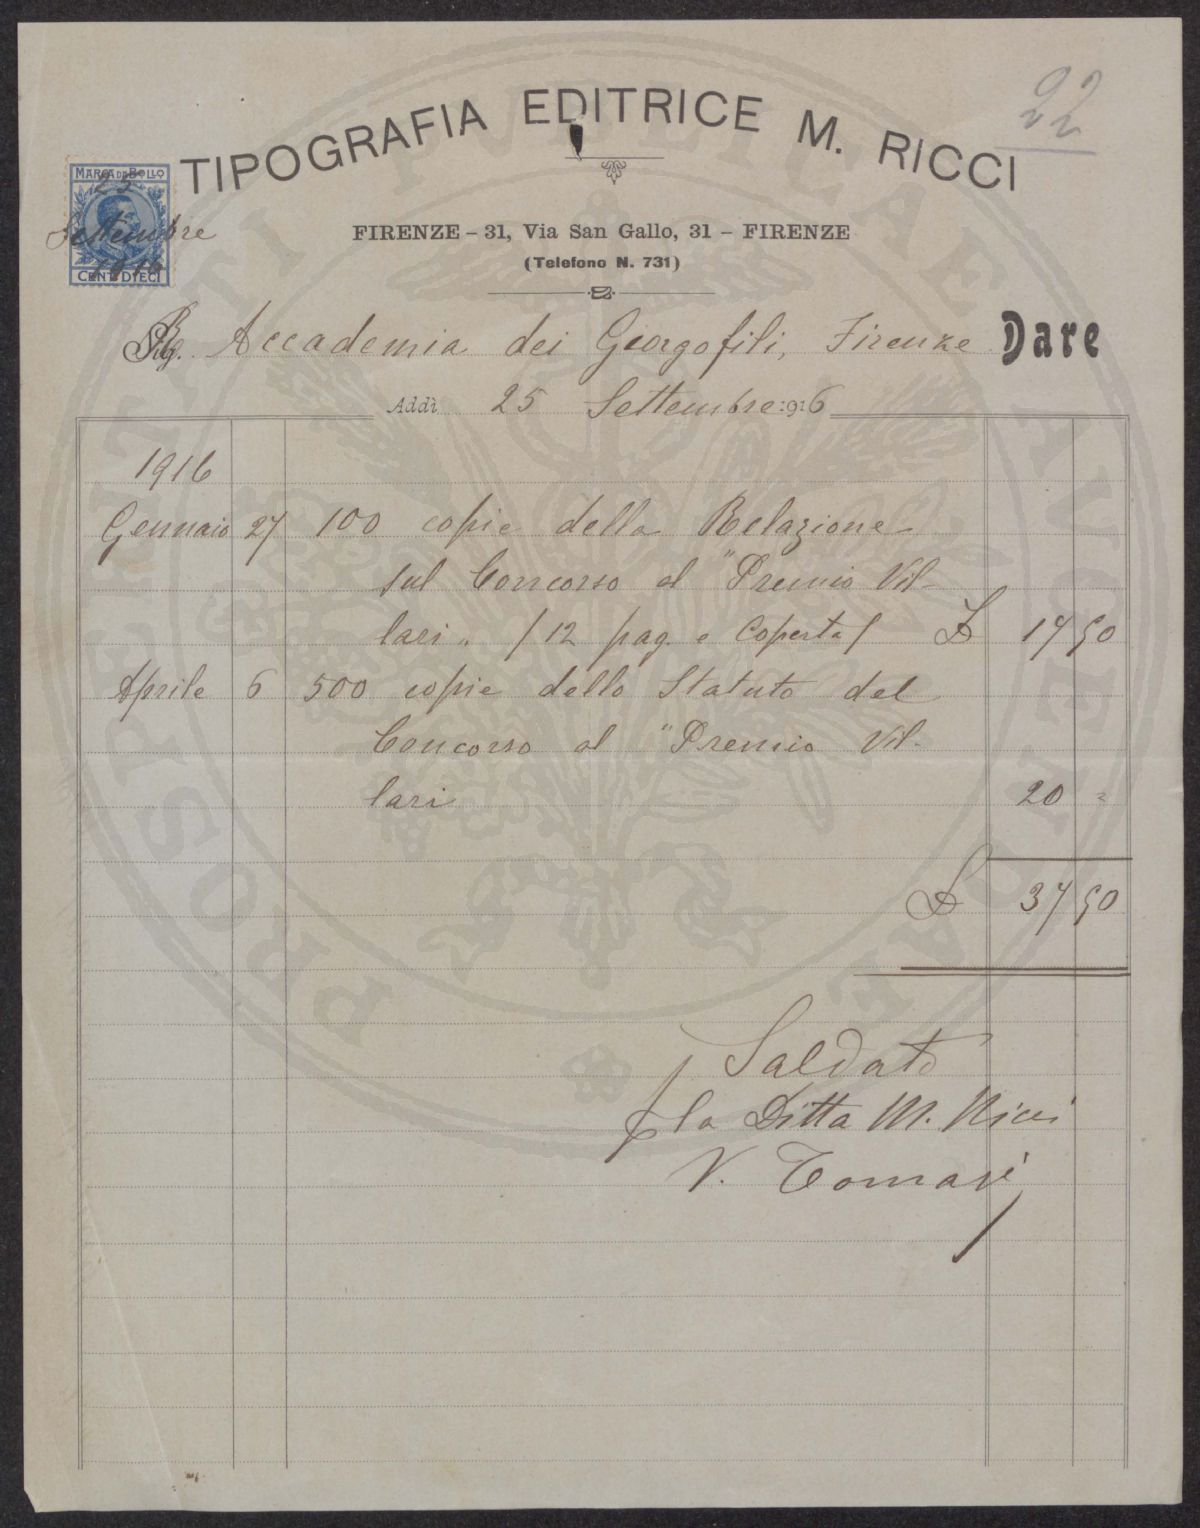 22
TIPOGRAFIA EDITRICE M. RICCI
MARCA DA BOLLO
25
Settembre
1916
CENT. DIECI
FIRENZE – 31, Via San Gallo, 31 – FIRENZE
(Telefono N. 731)
R. Accademia dei Georgofili, Firenze Dare
Addì 25 Settembre 1916
1916
Gennaio 27 100 copie della Relazione
sul Concorso al "Premio Vil-
lari„ (12 pag. e Coperta) £ 17 50
Aprile 6 500 copie dello Statuto del
Concorso al "Premio Vil-
lari 20 =
£ 37 50
Saldato
p la Ditta M. Ricci
V. Tomasi
PROSPERITATI PUBLICAE AUGENDAE